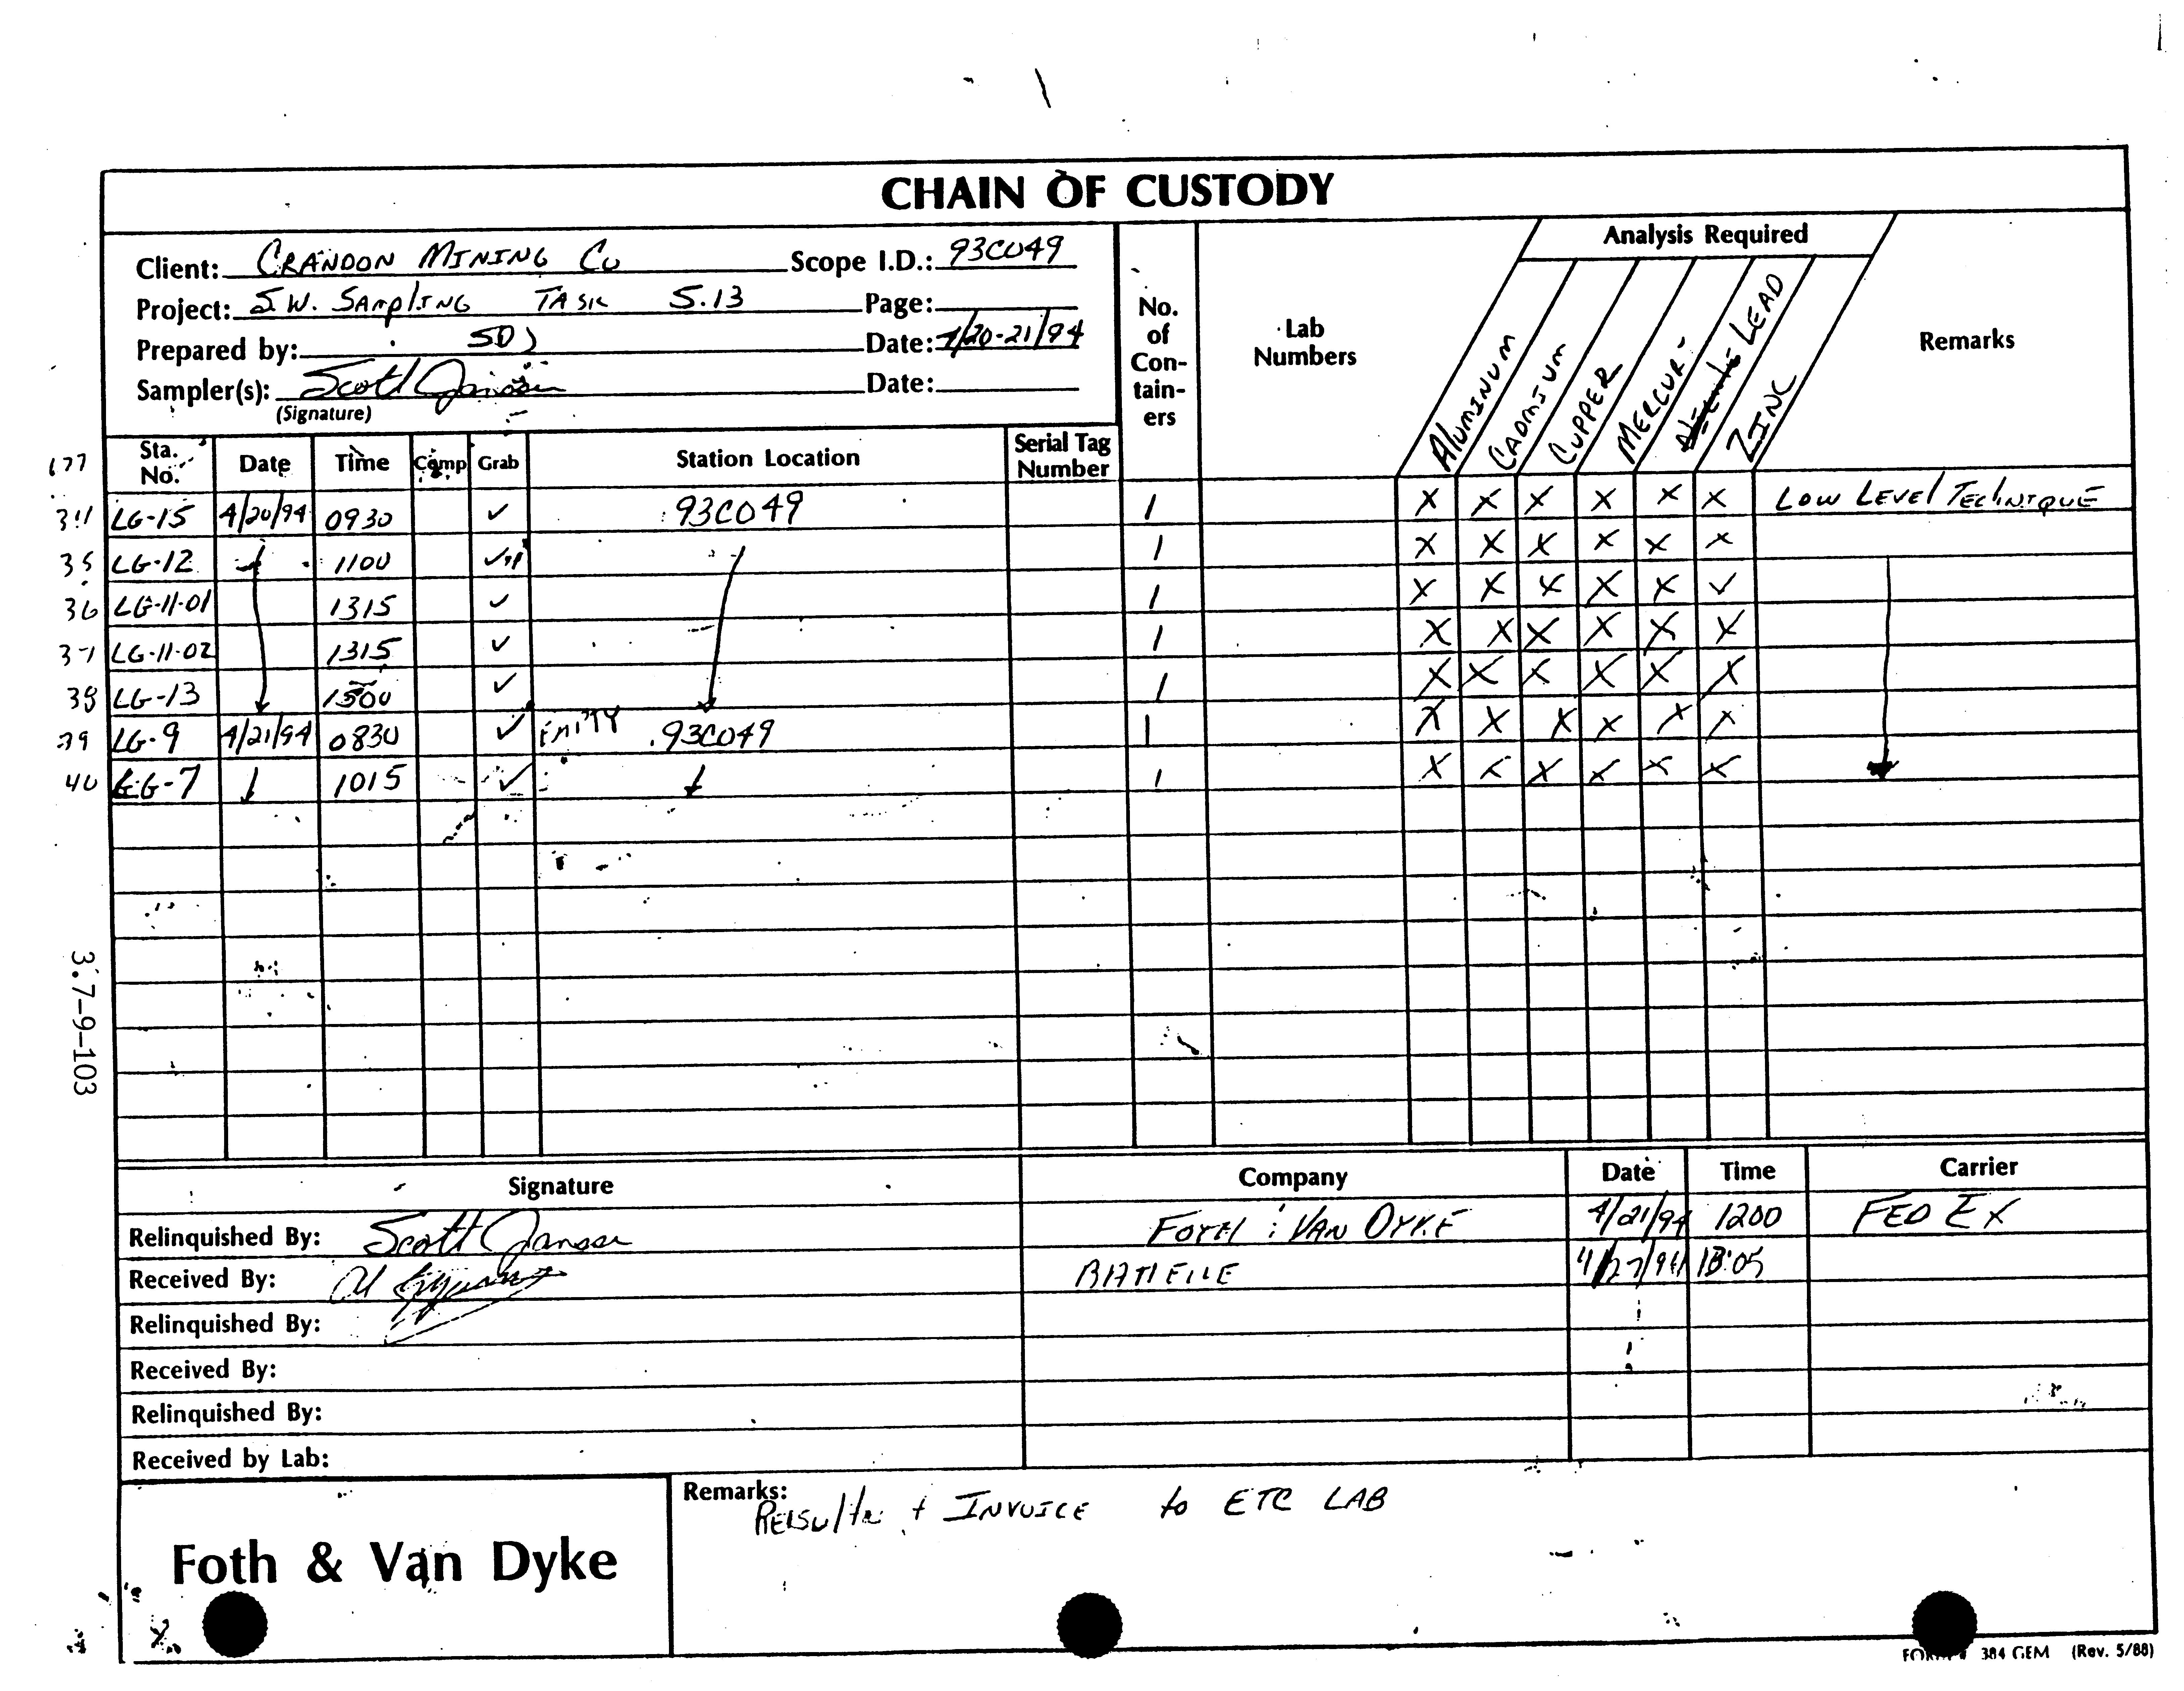 CHAIN OF CUSTODY
Client: CRANDON MINING CO Scope I.D.: 93C049
Project: S.W. SAMPLING TASK 5.13 Page:
Prepared by: SDJ Date: 4/20-21/94
Sampler(s): Scott Jansen Date:
(Signature)
No. of Con-tain-ers
Lab Numbers
Analysis Required
ALUMINUM CADMIUM COPPER MERCURY LEAD ZINC
Remarks
Sta. No. Date Time Comp Grab Station Location Serial Tag Number
LG-15 4/20/94 0930 ✓ 93C049 1 X X X X X X LOW LEVEL TECHNIQUE
35 LG-12 ↓ 1100 ✓ ↓ 1 X X X X X X ↓
36 LG-11-01 1315 ✓ 1 X X X X X ✓
37 LG-11-02 1315 ✓ 1 X X X X X X
38 LG-13 1500 ✓ 1 X X X X X X
39 LG-9 4/21/94 0830 ✓ 93C049 1 X X X X X X
40 LG-7 ↓ 1015 ✓ ↓ 1 X X X X X X
3.7-9-103
Signature Company Date Time Carrier
Relinquished By: Scott Jansen FOTH & VAN DYKE 4/21/94 1200 FED EX
Received By: BATTELLE
Relinquished By:
Received By:
Relinquished By:
Received by Lab:
Foth & Van Dyke
Remarks:
RESULTS + INVOICE to ETC LAB
384 GEM (Rev. 5/88)